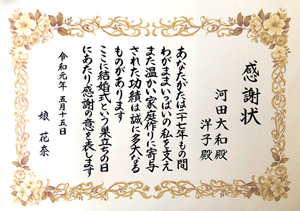 感謝状
河田大和殿
洋子殿
あなたがたは二十七年もの間
わがままいっぱいの私を支え
また温かい家庭作りに寄与
された功績は誠に多大なる
ものがあります
ここに結婚式という巣立ちの日
にあたり感謝の意を表します
令和元年 五月十五日
娘 花奈